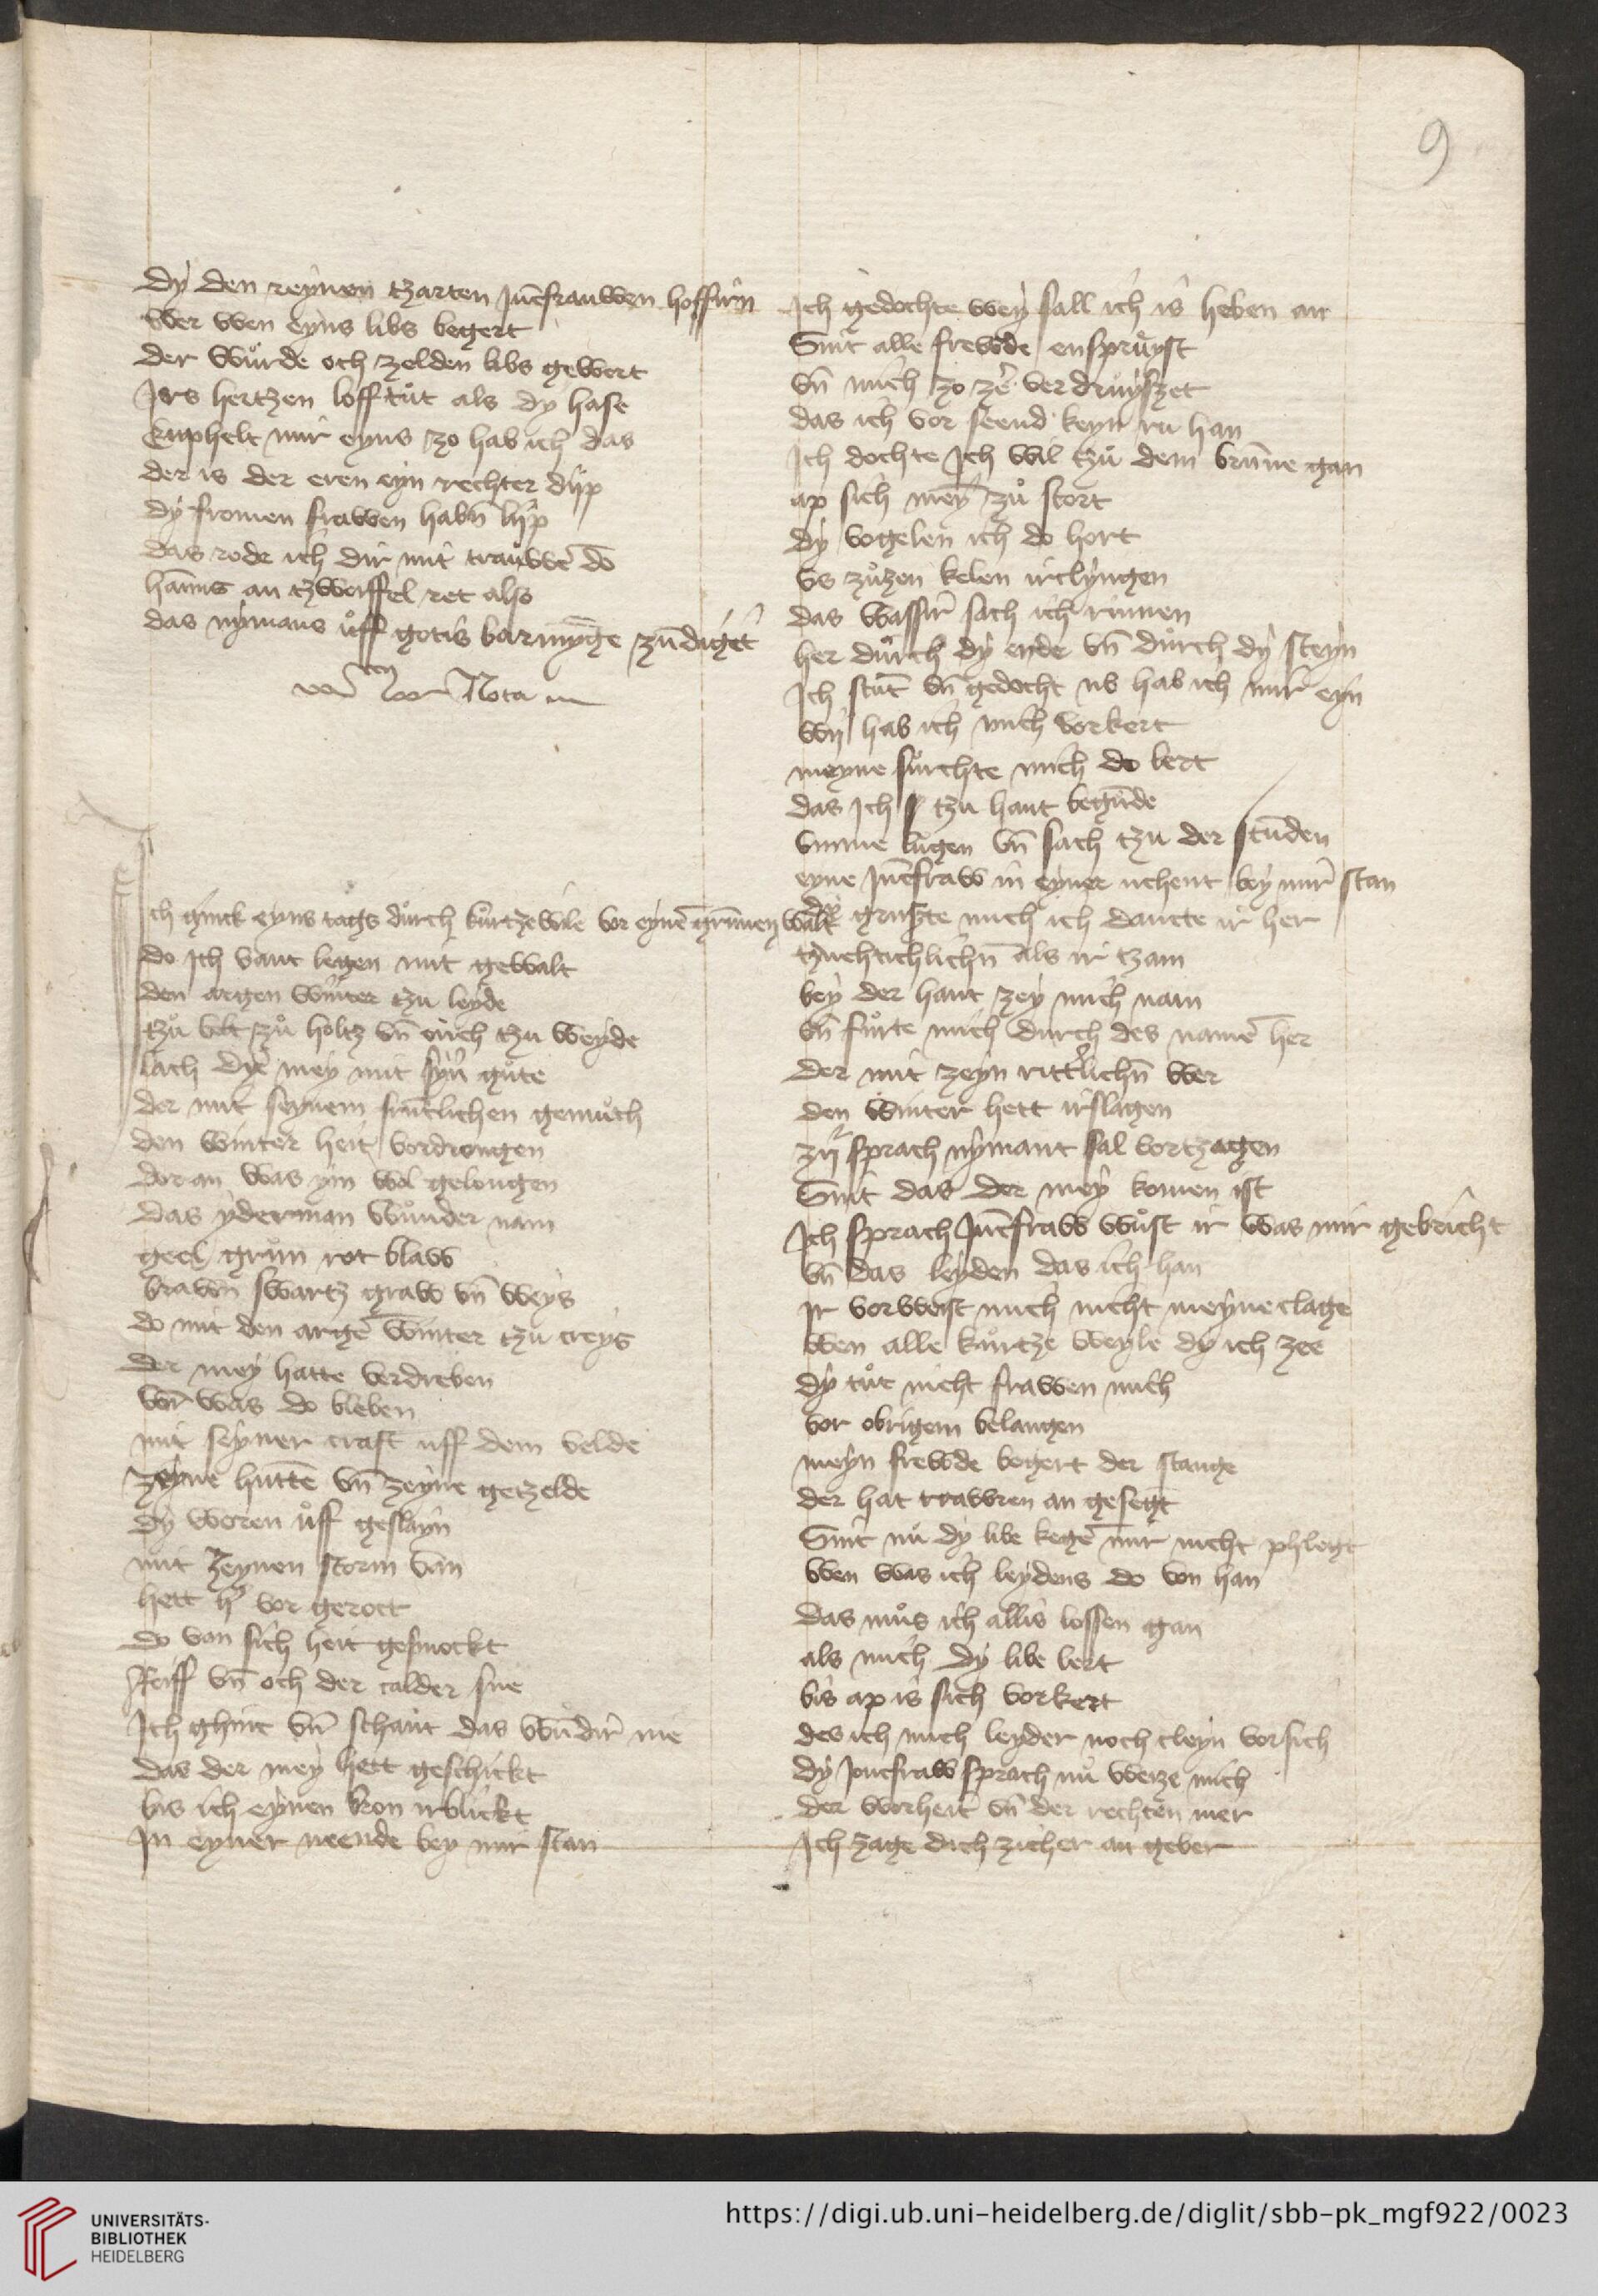 9
dy den reynen tzarten Jūcfrauwen hoffirn
wer wen eyns libs begert
der wůrde och zelden libs gewert
Jrs hertzen loff tůt als dy hase
Enphelt mir eyns zo hab ich das
der is der eren eyn rechter diip
dy fromen frawen habn̄ liip
das rode ich dir mit trauwē do
hanns an tzweiffel ret also
das nymans ůff gotis barmyge zūdiget
Nota
Jch ginck eyns tags důrch kůrtzewile vor eynē grūnen walt
do ich vant legen mit gewalt
den argen winter tzu leyde
tzů velt zů holtz vn̄ auch tzu weyde
lach dye mey mit syn gůte
der mit seynem frūtlichen gemůth
den winter heit vordrongen
dor an was ym wol gelongen
das yderman wůnder nam
geel grůn rot blaw
brawn swartz graw vn̄ weys
do mit den argē winter tzu creys
der mey hatte verdreben
vn̄ was do bleben
mit seyner craft uff dem velde
zeyne huttē vn̄ zeyne getzelde
dy woren ůff geslayn
mit zeynen storm van
hett h' vor gerott
do von sich heit gesmockt
Reiff vn̄ och der calder sne
Jch ghint vn̄ schaut das wūdir me
das der mey hett geschickt
bis ich eynen bron irblickt
Jn eyner neende bey mir stan
Jch gedochte wey sall ich is heben an
Sint alle frewde enspruyst
vn̄ mich zo zē verdruyszet
das ich vor seend keyn ru han
Jch dochte Jch wil tzů dem brūne gan
ap sich mey zů stort
dy vogelen ich do hort
vs zůzen kelen irclyngen
das wassir sach ich rinnen
her důrch dy erde vn̄ důrch dy steyn
Jch stūt vn̄ gedocht nv hab ich mir eyn
wy hab ich mich vorkert
meyne fůrchte mich do lert
das Jch tzu hant begūde
vmme lugen vn̄ sach tzu der stūden
eyne Jūcfraw in eyner nehent bey mir stan
dy gruszte mich ich dancte ir her
tzuchtichlichn̄ als ir tzam
bey der hant zey mich nam
vn̄ fůrte mich durch des namē her
der mit zeyn rittlichn̄ wer
den winter hett irslagen
zy sprach nymant sal vortzagen
Sint das der mey komen ist
Jch sprach Jūcfraw wůst ir was mir gebricht
vn̄ das leyden das ich han
ir vorweist mich nicht meyne clage
wen alle kůrtze weyle dy ich zee
dy tůt nicht frawen mich
vor obrigem belangen
meyn frewde begert der stange
der hat trawren an gesegt
Sint nů dy libe kegē mir nicht phlegt
wen was ich leydens do von han
das můs ich allis lossen gan
als mich dy libe lert
bis ap is sich vorkert
des ich mich leyder noch cleyn vorsich
dy Joncfraw sprach nů weize mich
der worheit vn̄ der rechten mer
Jch zage dich zicher an geber
UNIVERSITÄTS-
BIBLIOTHEK
HEIDELBERG
https://digi.ub.uni-heidelberg.de/diglit/sbb-pk_mgf922/0023